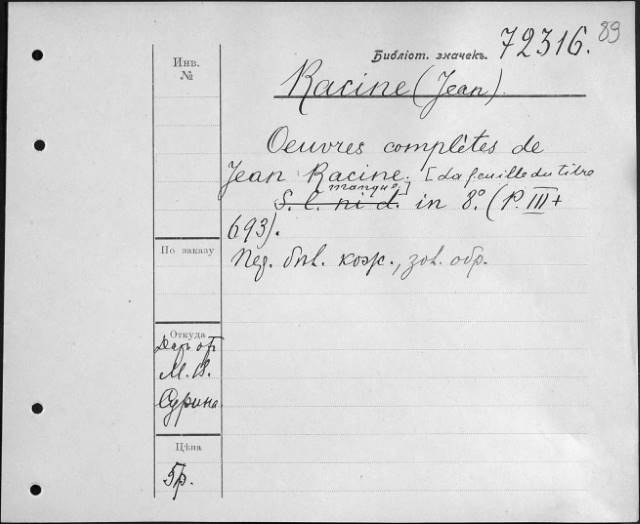 89
Библіот. значекъ. 72316.
Инв.
№
Racine (Jean)
Oeuvres complètes de
Jean Racine. [La feuille du titre
manque]
S. l. ni d. in 8.° (P. III +
693).
По заказу
Пер. бѣл. кож., зол. обр.
Откуда
Даръ от
М. В.
Сурина
Цѣна
5р.